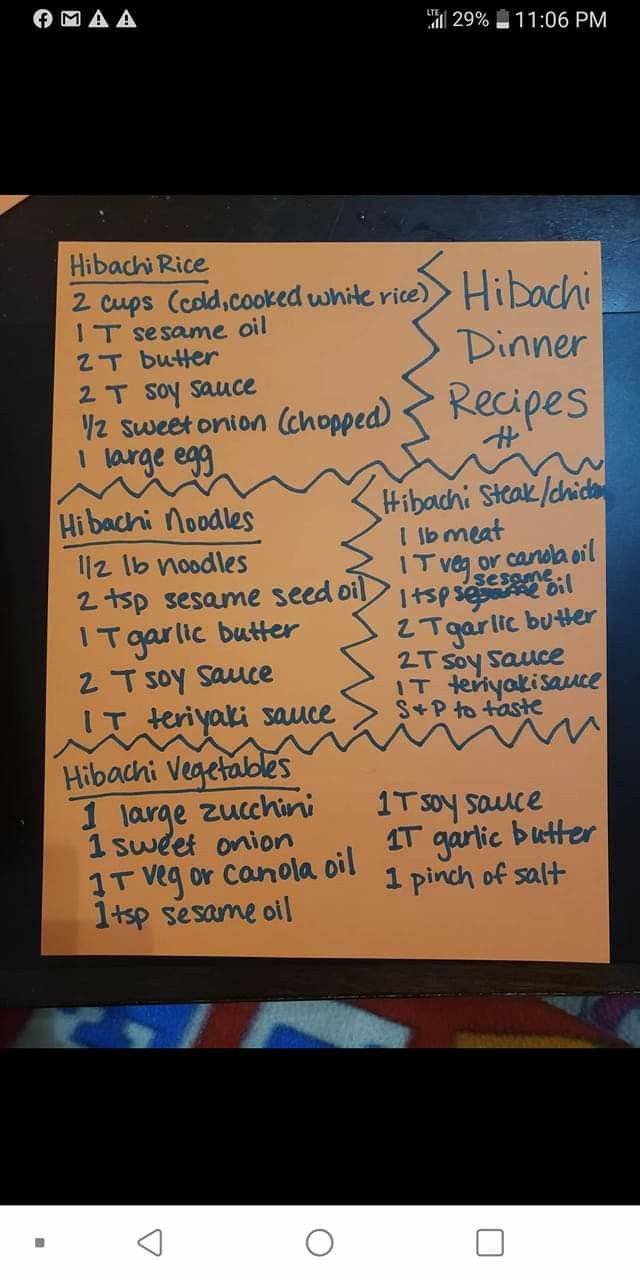 LTE 29% 11:06 PM
Hibachi Rice
2 cups (cold, cooked white rice)
1 T sesame oil
2 T butter
2 T soy sauce
1/2 sweet onion (chopped)
1 large egg
Hibachi
Dinner
Recipes
Hibachi Noodles
1/2 lb noodles
2 tsp sesame seed oil
1 T garlic butter
2 T soy sauce
1 T teriyaki sauce
Hibachi Steak/chicken
1 lb meat
1 T veg or canola oil
1 tsp sesame oil
2 T garlic butter
2 T soy sauce
1 T teriyaki sauce
S+P to taste
Hibachi Vegetables
1 large zucchini
1 sweet onion
1 T veg or canola oil
1 tsp sesame oil
1 T soy sauce
1T garlic butter
1 pinch of salt